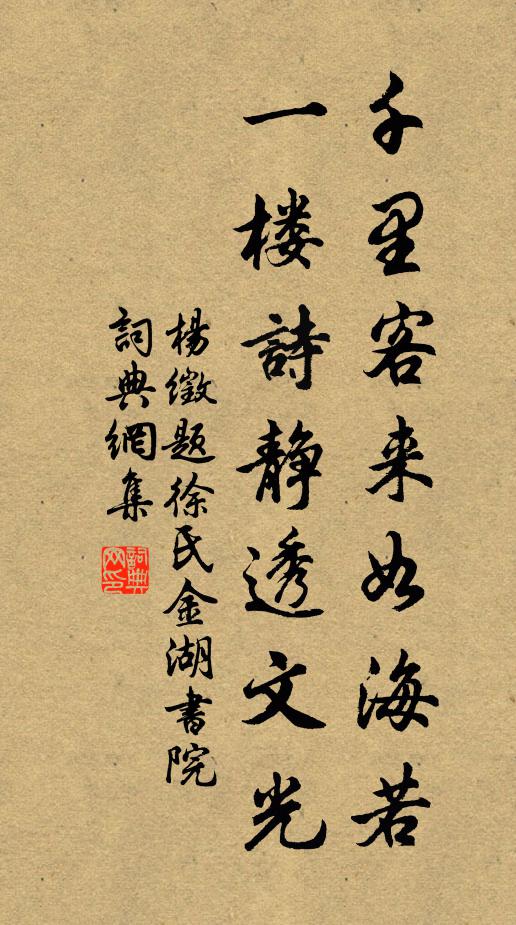 千里客来如海若
一楼詩静透文光
楊徽題徐氏金湖書院
詞典網集
詞典
网印